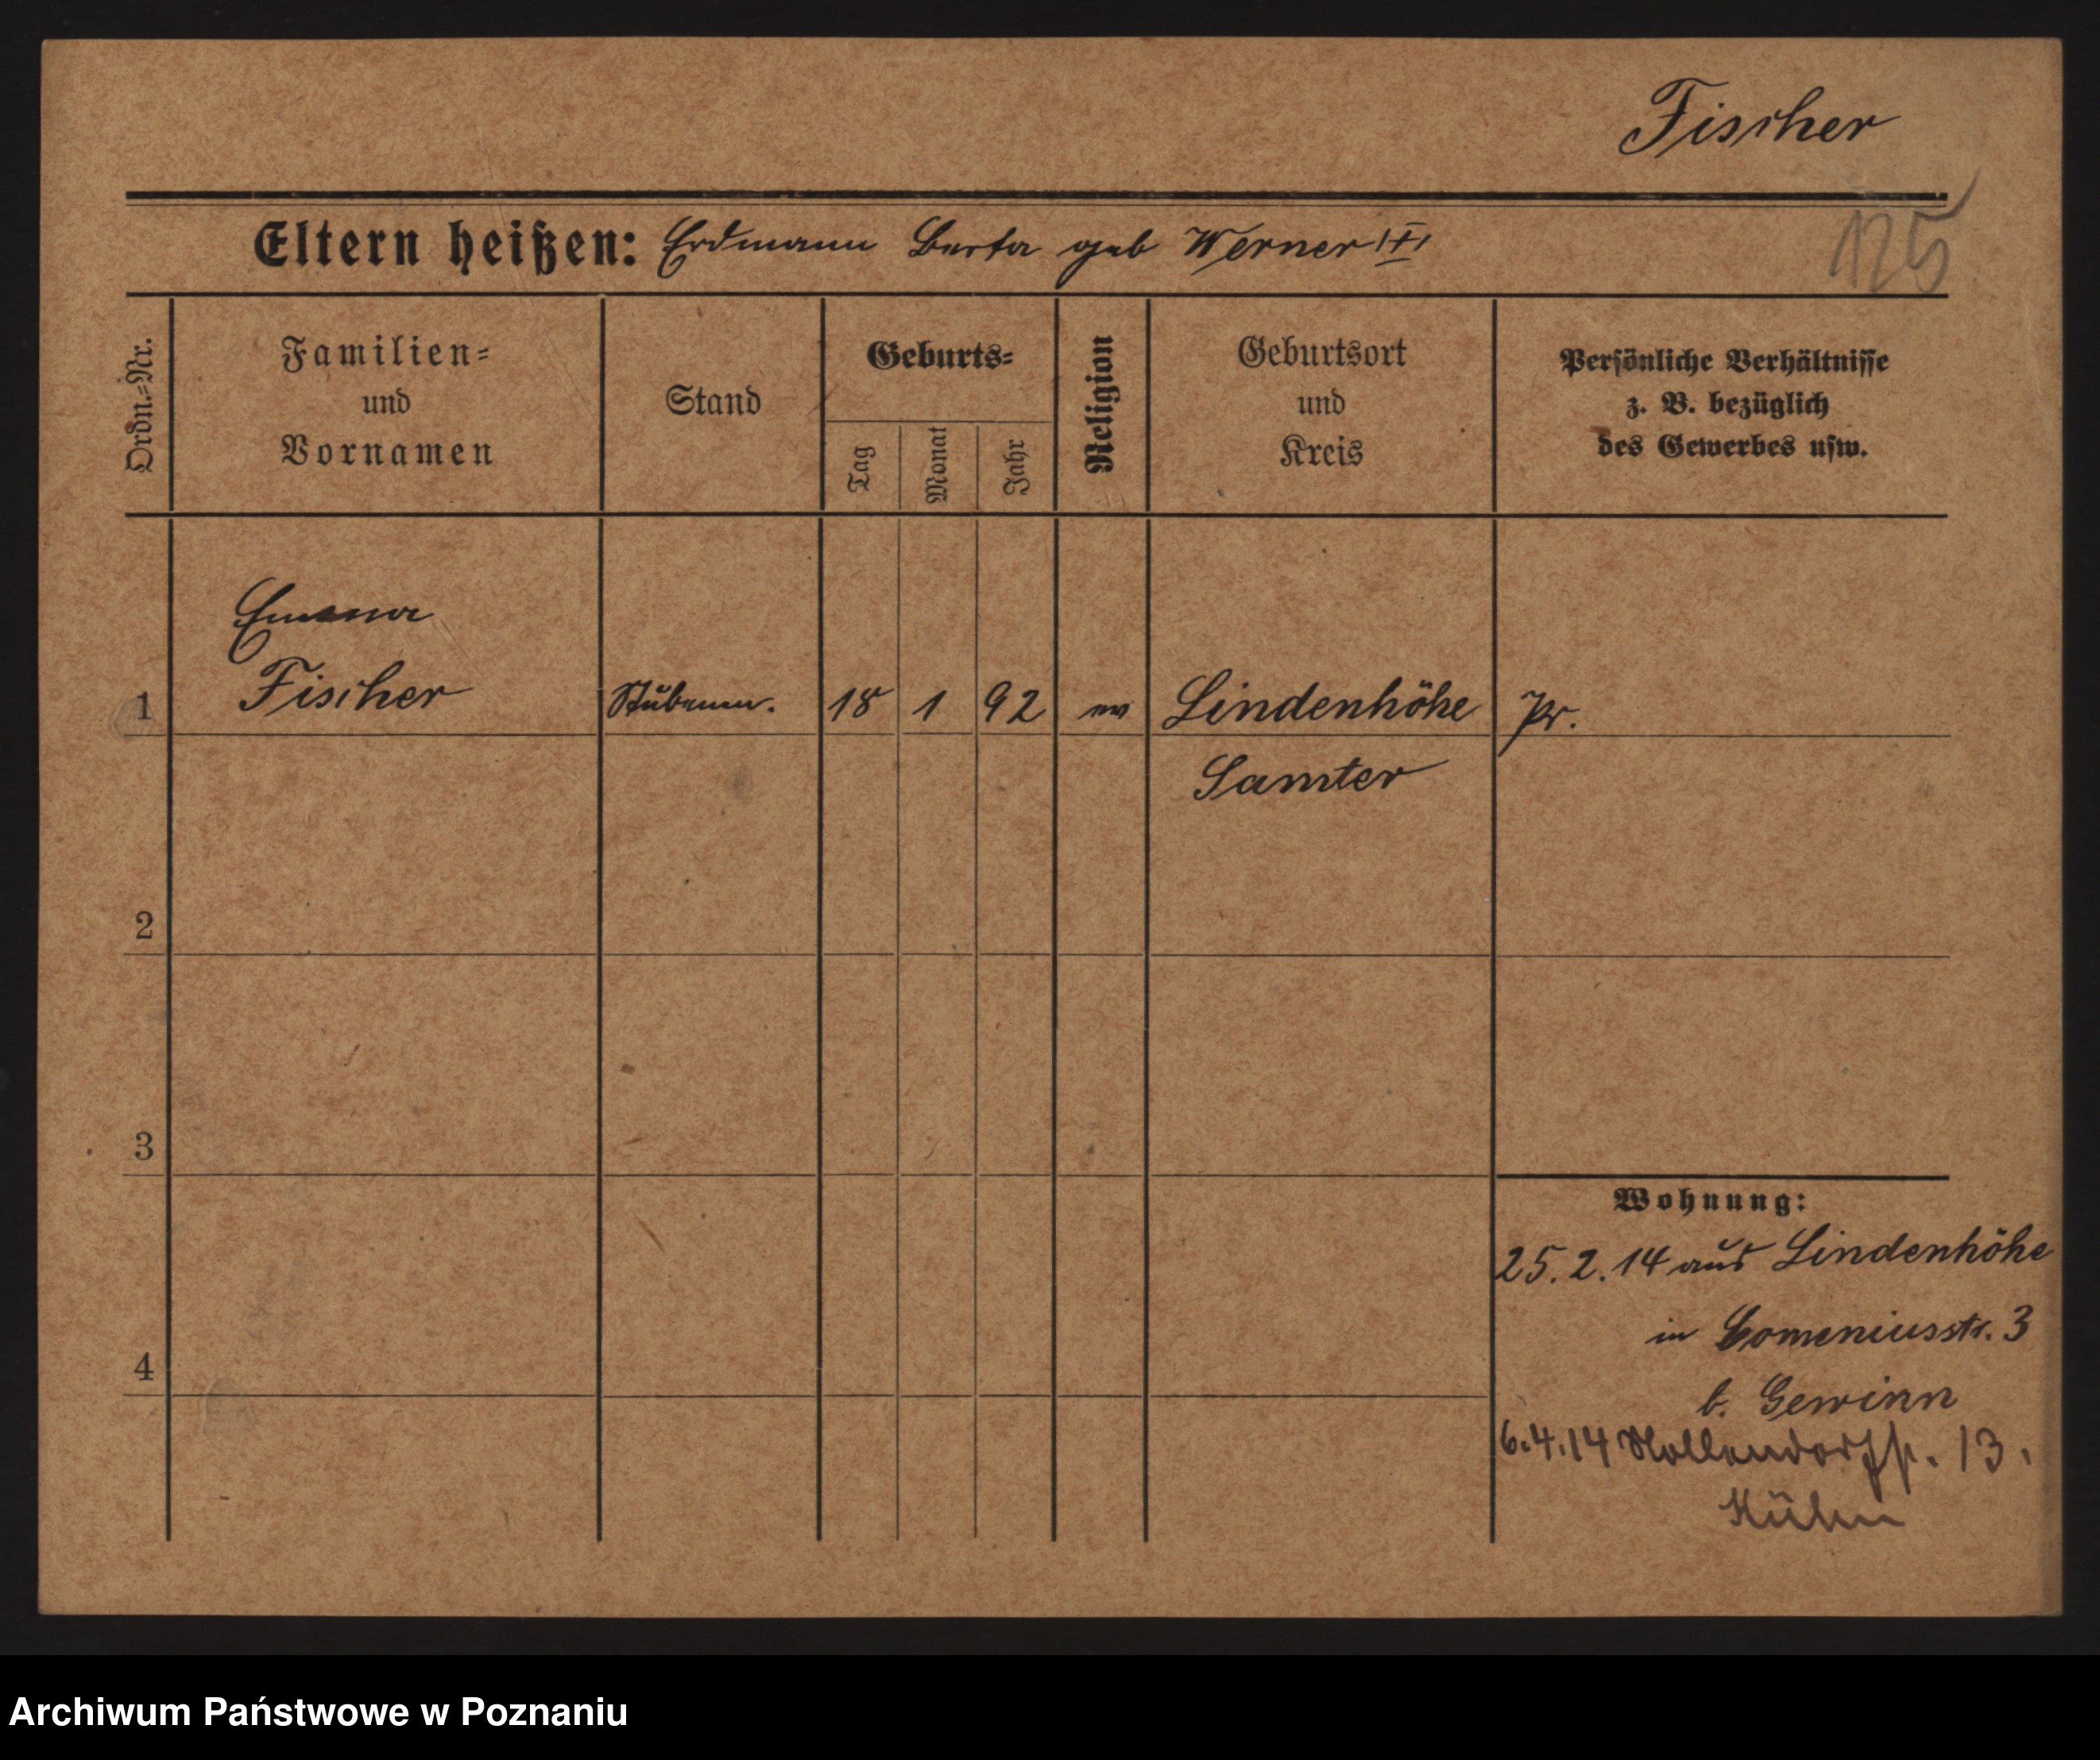 Fischer
125
Eltern heißen: Erdmann Berta geb Werner
Ordn.=Nr.
Familien=
und
Vornamen
Stand
Geburts=
Tag
Monat
Jahr
Religion
Geburtsort
und
Kreis
Persönliche Verhältnisse
z. B. bezüglich
des Gewerbes usw.
Emma
1 Fischer Stubenm. 18 1 92 ev Lindenhöhe Pr.
Samter
2
3
4
Wohnung:
25.2.14 aus Lindenhöhe
in Comeniusstr. 3
b. Gewinn
6.4.14 Nollendorfstr. 13.
Kühn
Archiwum Państwowe w Poznaniu